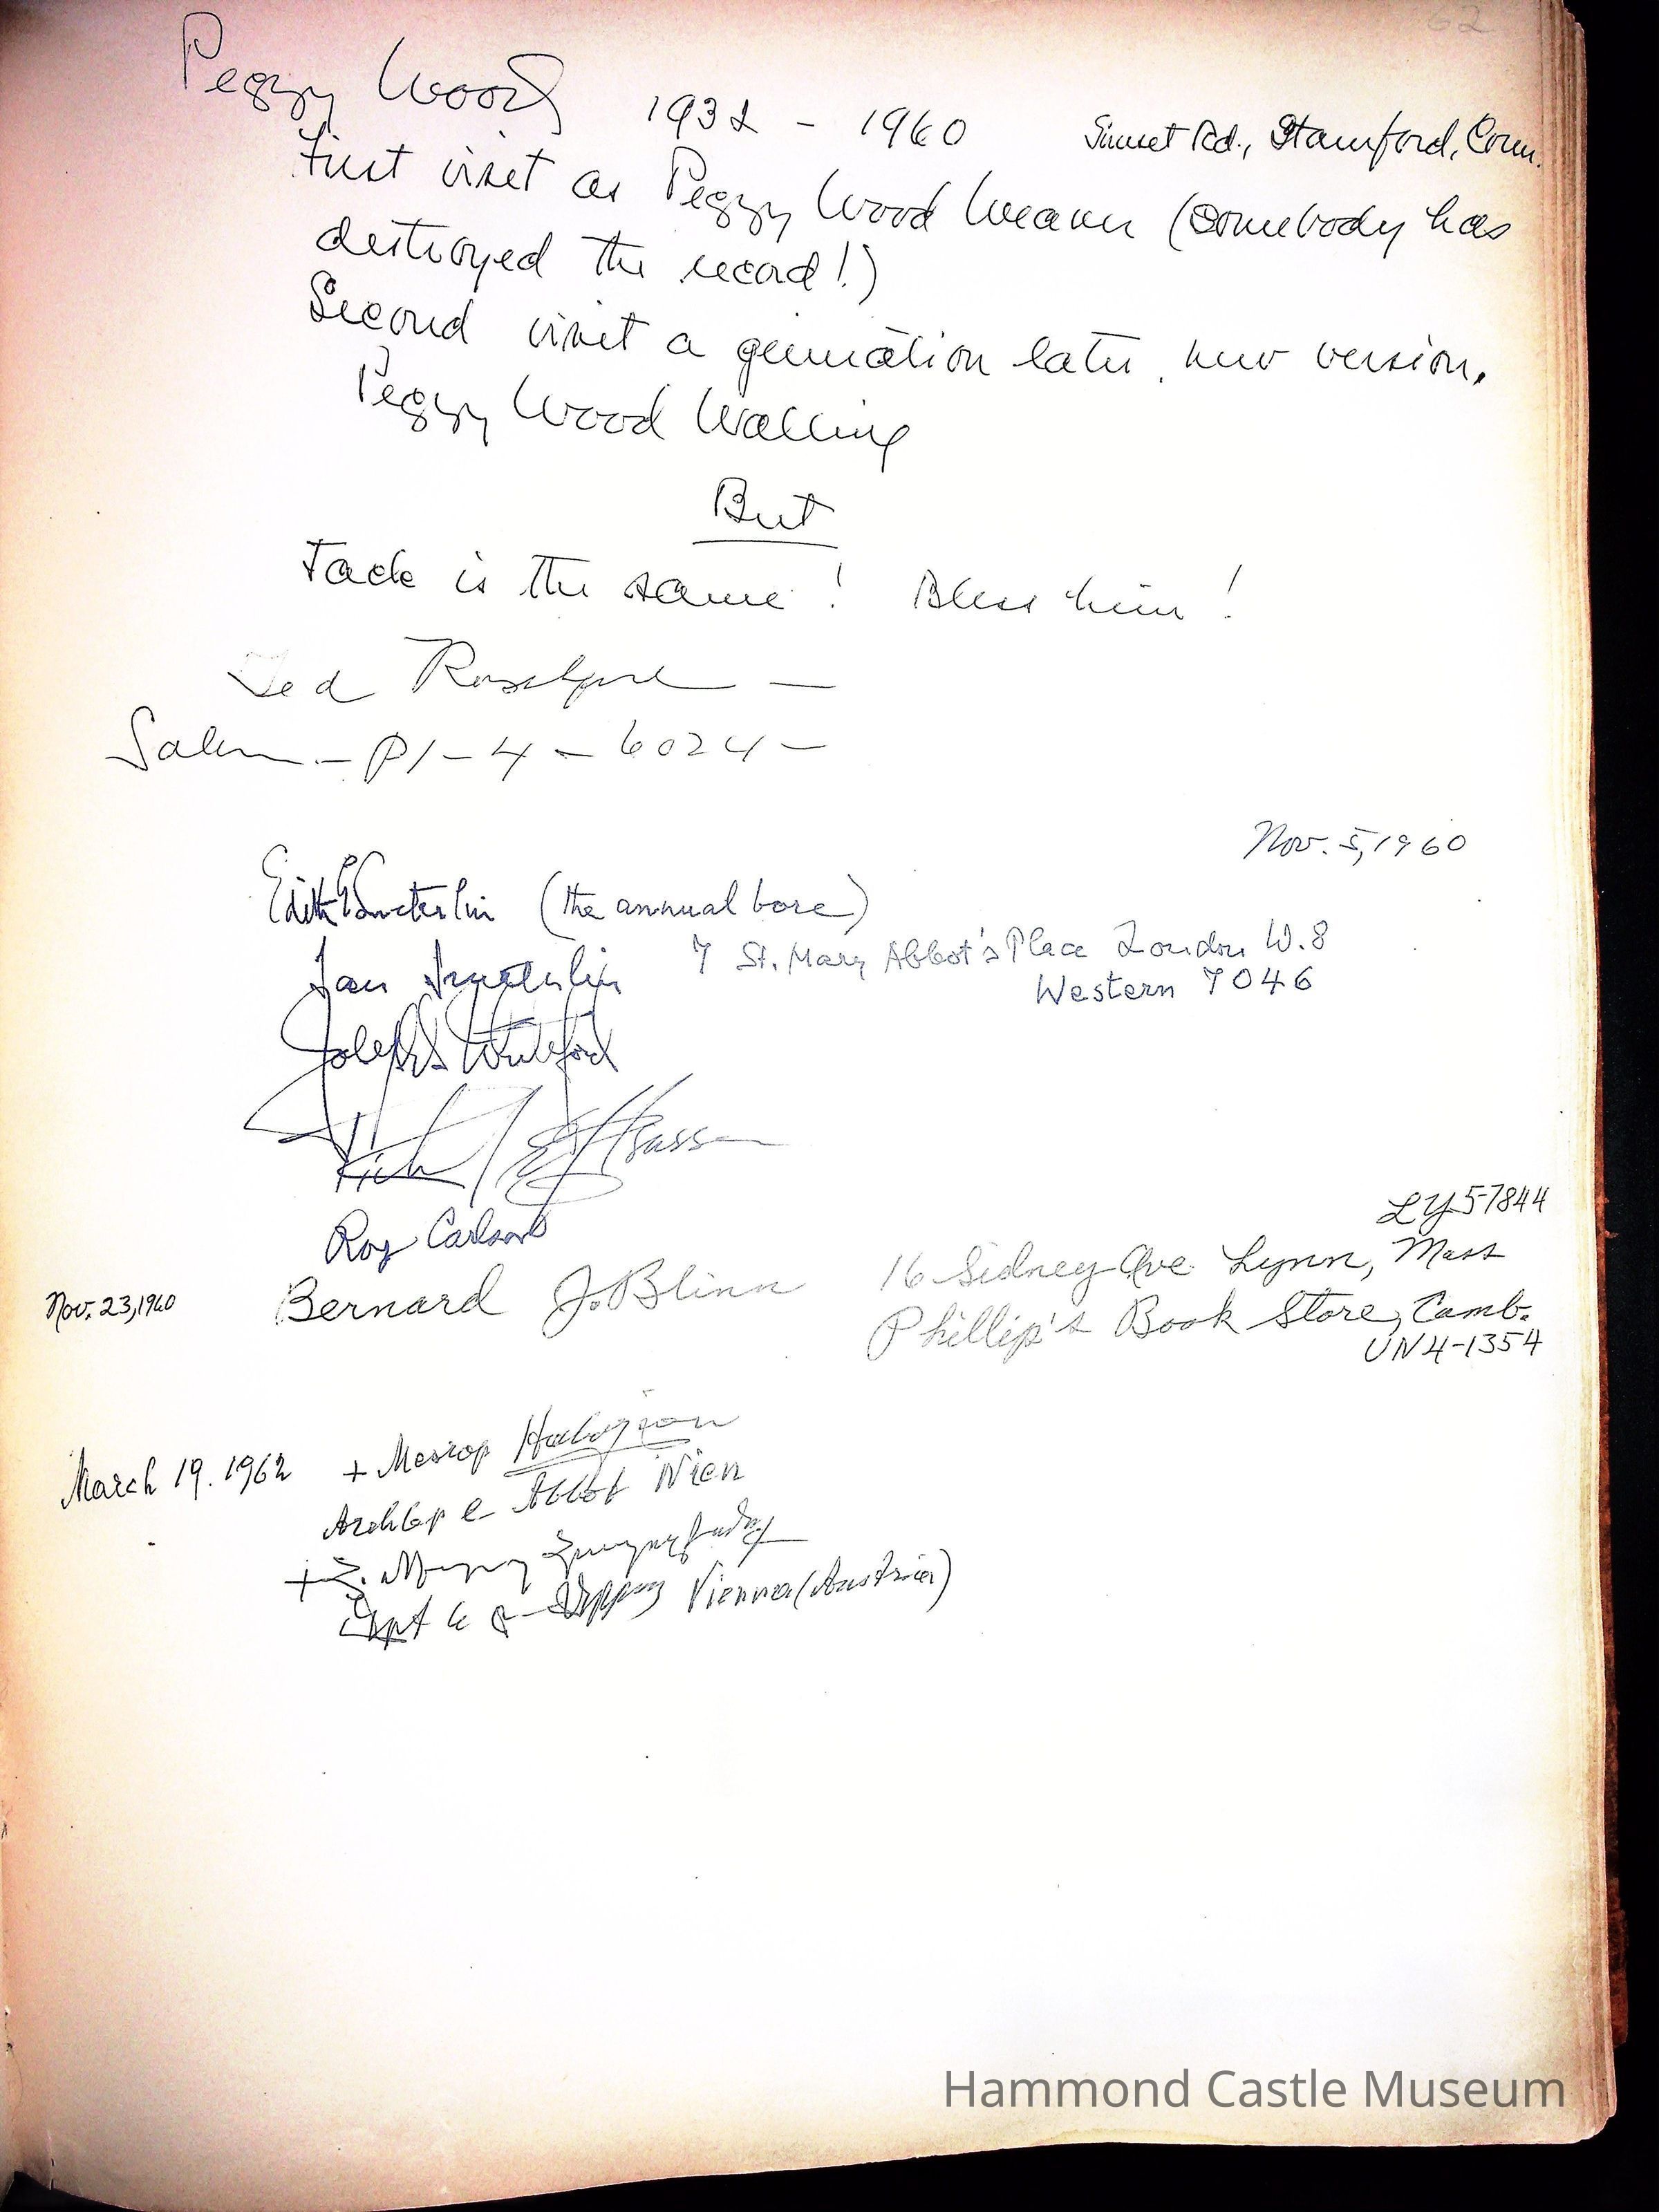 62
Peggy Wood 1932 - 1960 Sunset Rd., Stamford, Conn.
First visit as Peggy Wood Weaver (somebody has
destroyed the record!)
Second visit a generation later, new version.
Peggy Wood Walling
But
Jack is the same! Bless him!
Ted
Salem - PI - 4 - 6024 -
Nov. 5, 1960
Edith (the annual bore)
Jan 7 St. Mary Abbot's Place London W.8
Western 7046
Joseph S. Whiteford
Roy Carlson
LY 5-7844
Nov. 23, 1960 Bernard J. Blinn 16 Sidney Ave Lynn, Mass
Phillip's Book Store, Camb.
UN 4-1354
March 19. 1962 + Mesrop Habozian
Archbp & Abbot Wien
Vienna (Austria)
Hammond Castle Museum